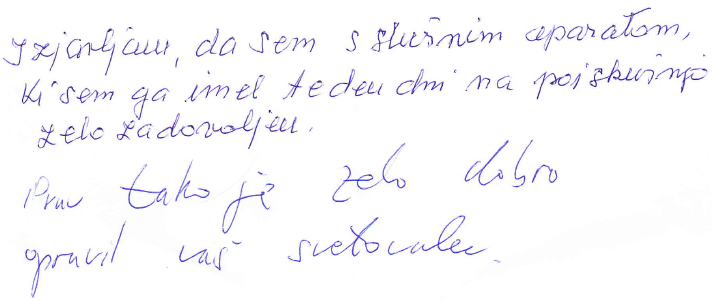 Izjavljam, da sem s slušnim aparatom,
ki sem ga imel teden dni na poiskušnjo
zelo zadovoljen.
Prav tako je zelo dobro
opravil vaš svetovalec.